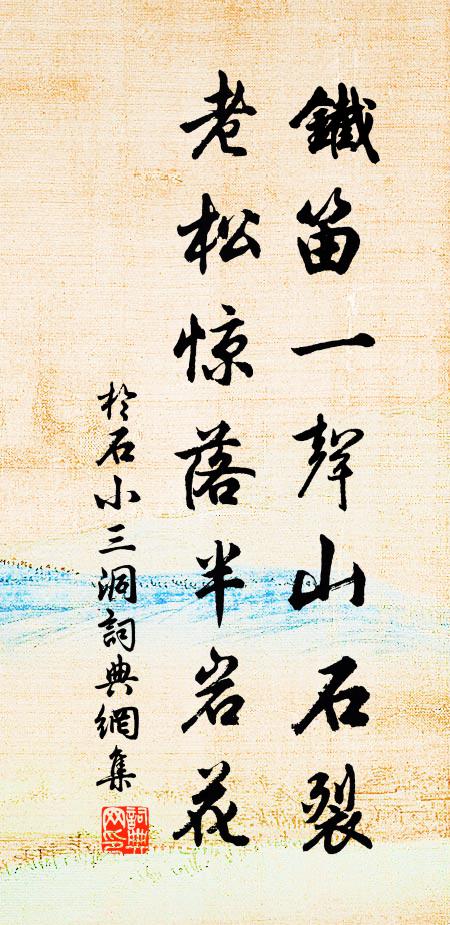 鐵笛一聲山石裂
老松惊落半岩花
於石小三洞詞典網集
詞典網印